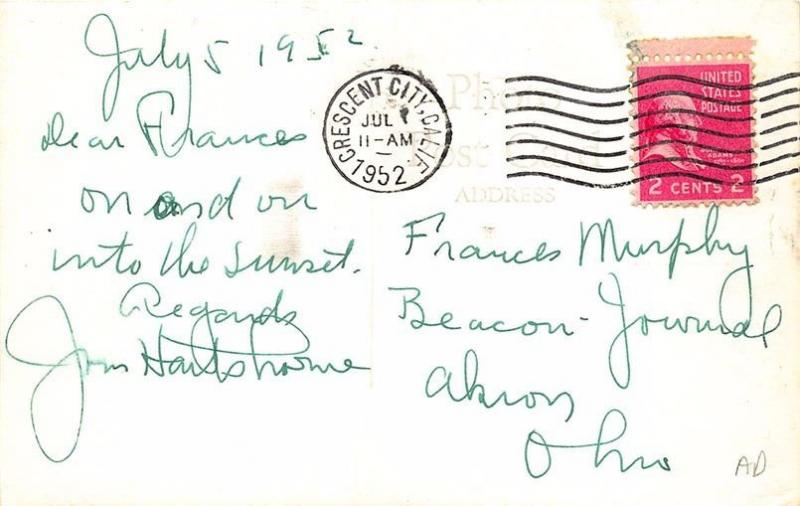 July 5 1952
Dear Frances
on and on
into the sunset.
Regards
Jim Hartshorne
CRESCENT CITY, CALIF.
JUL
11-AM
1952
Photo
Post Card
ADDRESS
UNITED
STATES
POSTAGE
ADAMS
2 CENTS 2
Frances Murphy
Beacon-Journal
Akron
Ohio
AD